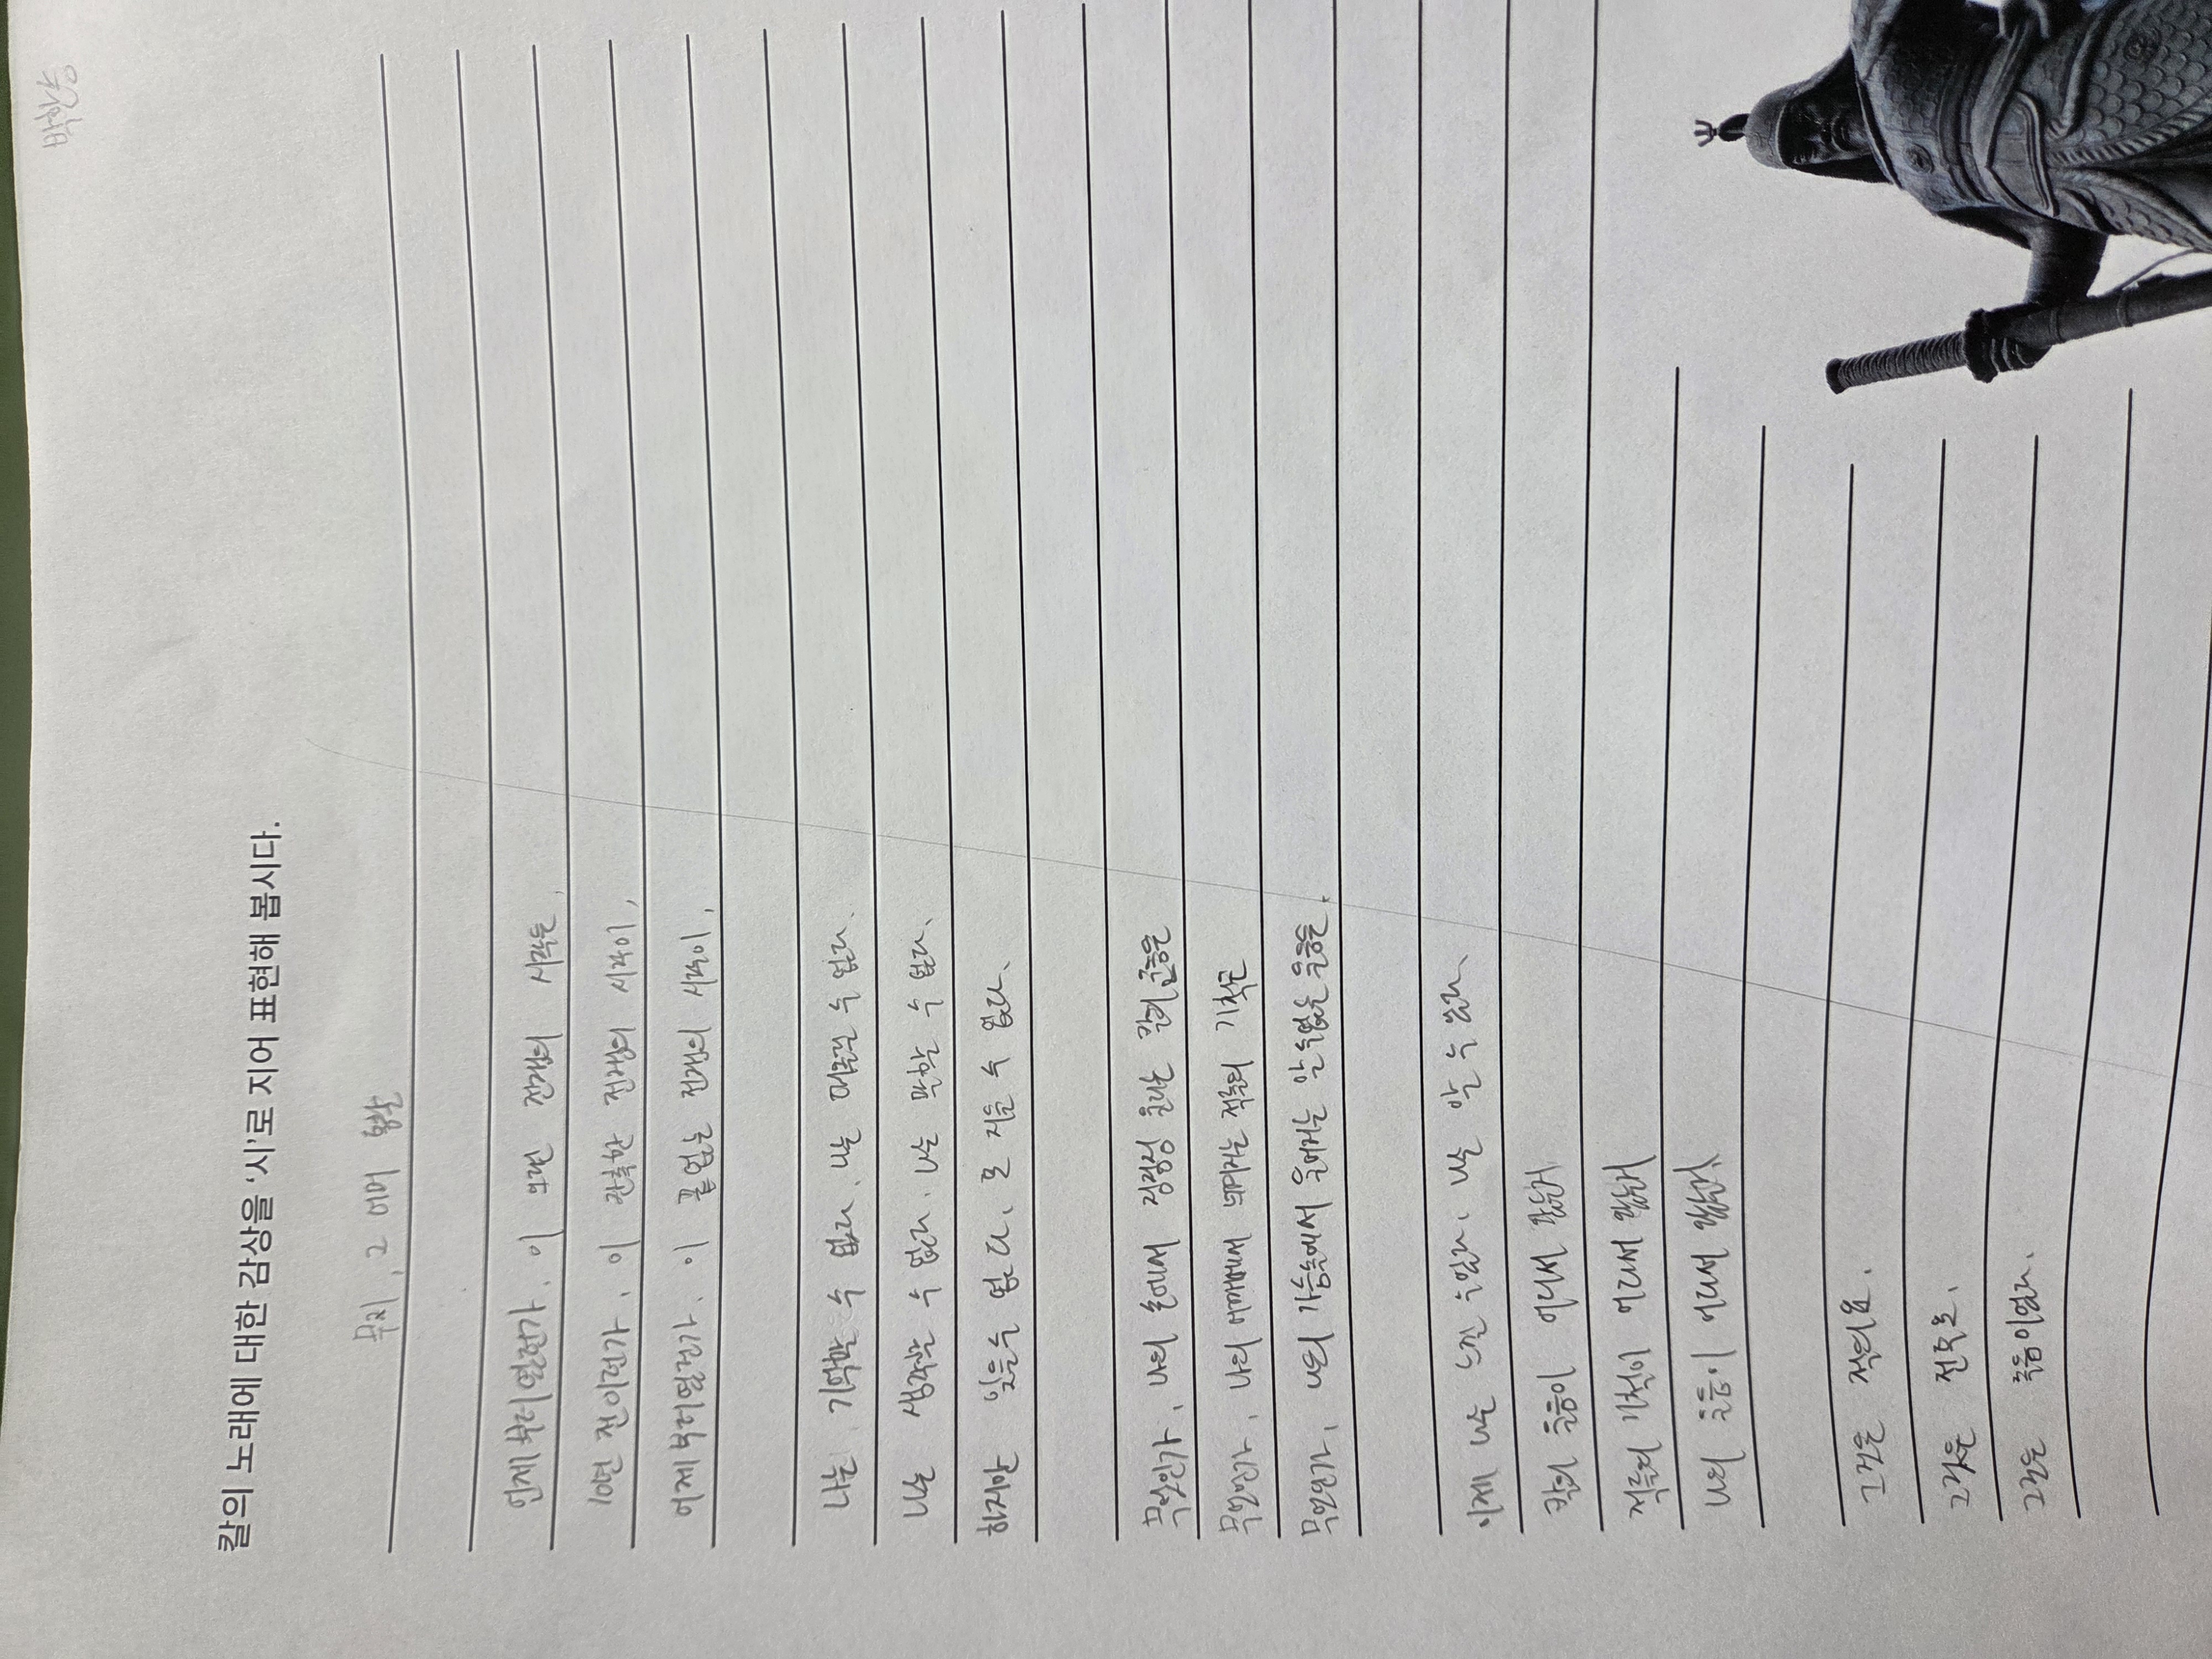 박하웅
칼의 노래에 대한 감상을 '시'로 지어 표현해 봅시다.
무지, 그 에의 함
언제부터였던가. 이 모든 전쟁의 시작은,
10년 전이던가. 이 참혹한 전쟁의 시작이,
어제부터였던가. 이 끝없는 전쟁의 시작이,
나는 기억할 수 없다. 나는 떠올릴 수 없다.
나는 생각할 수 없다. 나는 말할 수 없다.
하지만 잊을 수 없다. 모 지울 수 없다.
무엇인가, 나의 손에서 징징징 우는 칼의 울음은
무엇인가, 나의 어깨에서 느껴지는 적들의 기척은
무엇인가, 나의 가슴속에서 우러나는 알 수 없는 울음은.
이제 나는 느낄 수 있다. 나는 알 수 있다.
칼의 울음이 어디서 왔는지
적들의 기척이 어디서 왔는지
나의 울음이 어디서 왔는지
그것은 적의요.
그것은 전우요.
그것은 죽음이었다.